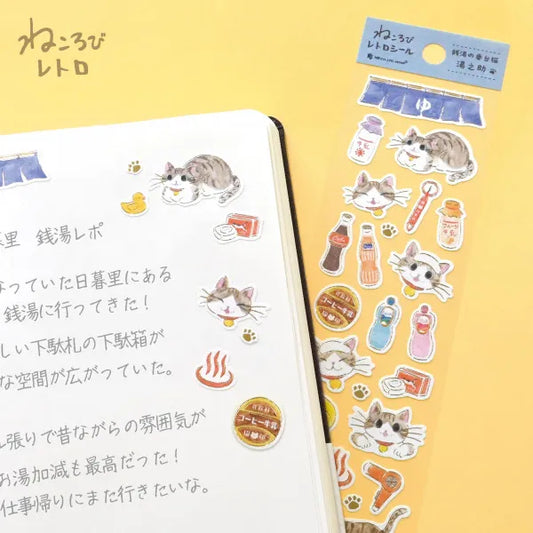 ねころび
レトロ
ねころび
レトロシール
銭湯の番台猫
湯之助
ゆ
里 銭湯レポ
なっていた日暮里にある
銭湯に行ってきた!
しい下駄札の下駄箱が
な空間が広がっていた。
ル張りで昔ながらの雰囲気が
お湯加減も最高だった!
仕事帰りにまた行きたいな。
コーヒー牛乳
コーヒー牛乳